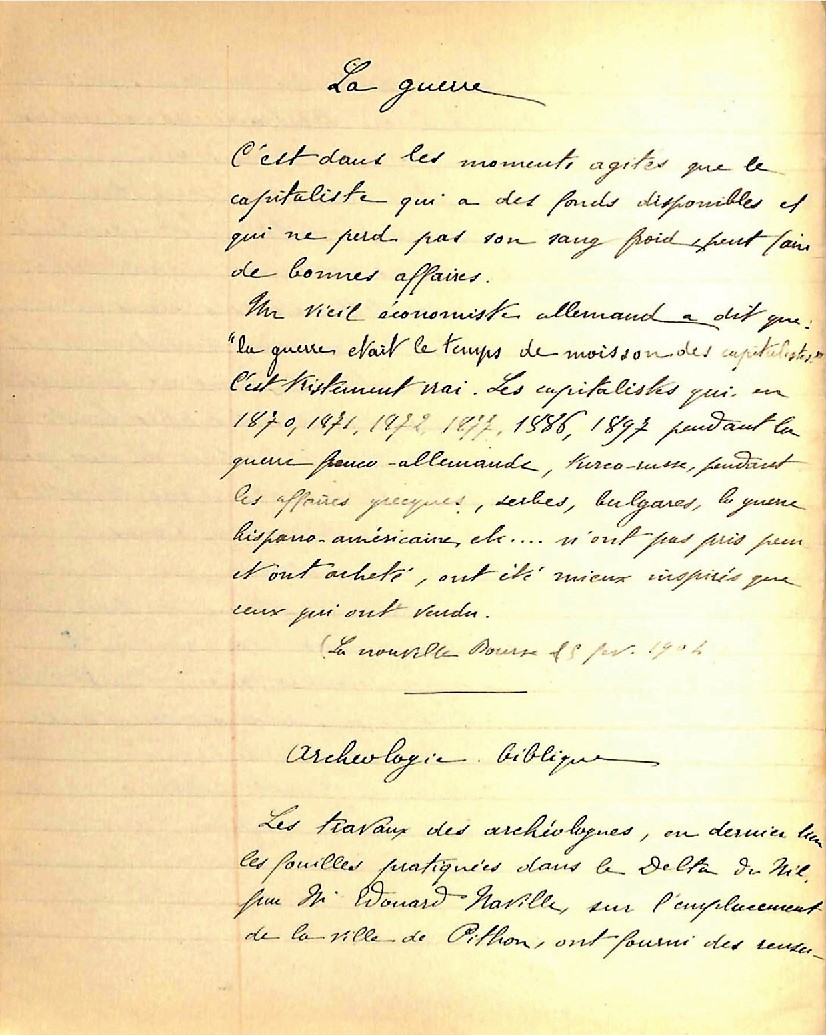 La guerre
C'est dans les moments agités que le
capitaliste qui a des fonds disponibles et
qui ne perd pas son sang froid, peut faire
de bonnes affaires.
Un vieil économiste allemand a dit que:
"la guerre était le temps de moisson des capitalistes."
C'est tristement vrai. Les capitalistes qui en
1870, 1871, 1872, 1877, 1886, 1897 pendant la
guerre franco-allemande, turco-russe, pendant
les affaires grecques, serbes, bulgares, la guerre
hispano-américaine, etc.... n'ont pas pris peur
et ont acheté, ont été mieux inspirés que
ceux qui ont vendu.
(La nouvelle Bourse 25 fev. 1904
Archéologie biblique
Les travaux des archéologues, en dernier lieu
les fouilles pratiquées dans le Delta du Nil,
par Mr Edouard Naville, sur l'emplacement
de la ville de Pithon, ont fourni des rensei-